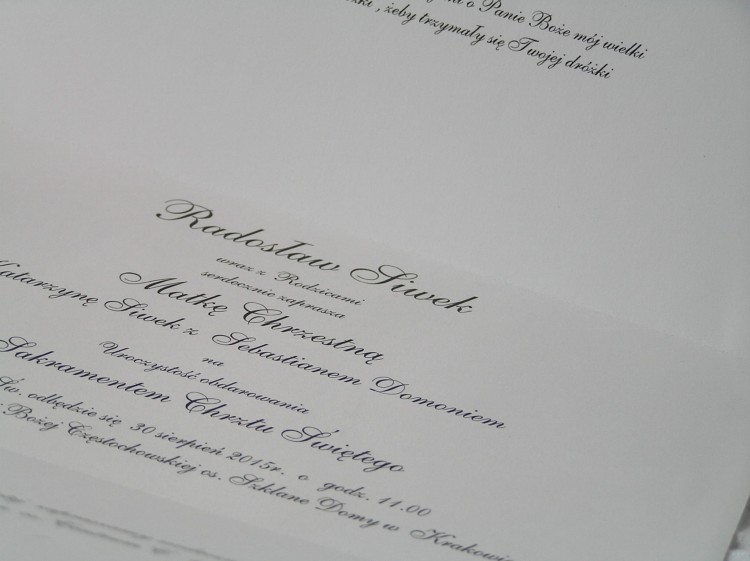 o Panie Boże mój wielki
, żeby trzymały się Twojej dróżki
Radosław Siwek
wraz z Rodzicami
serdecznie zaprasza
Matkę Chrzestną
Katarzynę Siwek z Sebastianem Domoniem
na
Uroczystość obdarowania
Sakramentem Chrztu Świętego
Św. odbędzie się 30 sierpień 2015r. o godz. 11.00
Bożej Częstochowskiej os. Szklane Domy w Krakowie